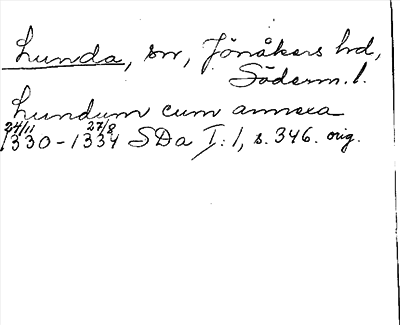 Lunda, sn, Jönåkers hd,
Söderm. l.
Lundum cum annexa
24/11 27/8
1330-1334 SDa I:1, s. 346. orig.